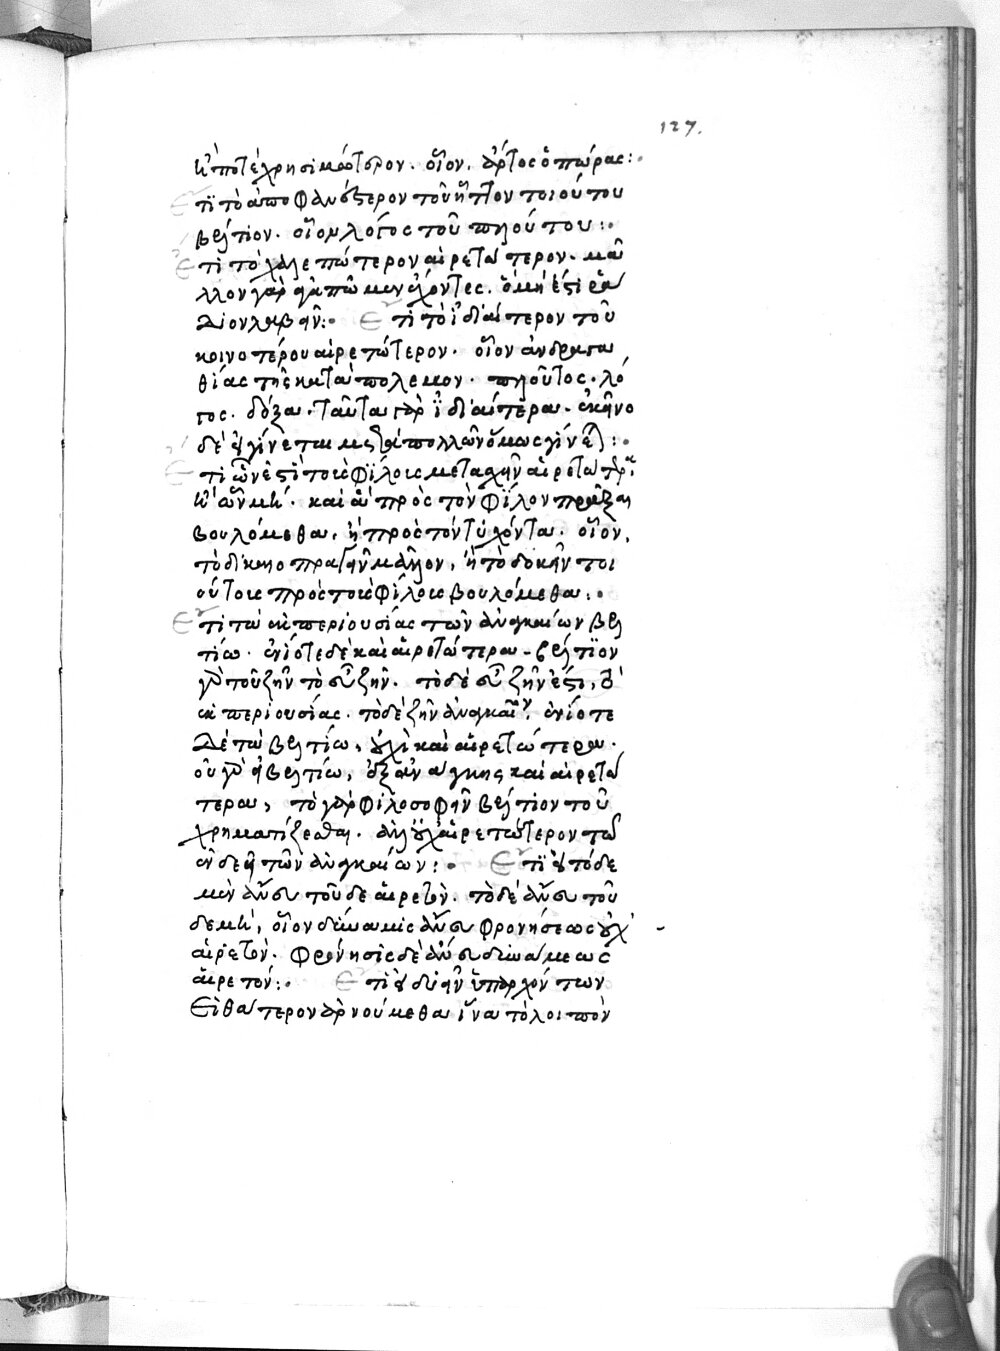 127.
κ(αὶ) ποτὲ χρησιμώτερον· οἷον, ἄρτος ὀπώρας:·
Ἔτι τὸ ἀποφανέστερον τοῦ ἧττον τοιούτου
βέλτιον· οἷον λόγος τοῦ πλούτου:·
Ἔτι τὸ χαλεπώτερον αἱρετώτερον· μᾶ
λλον γὰρ ἀγαπῶμεν ἔχοντες, ὃ μή ἐστι ῥᾴ
διον λαβεῖν:· Ἔτι τὸ ἰδιαίτερον τοῦ
κοινοτέρου αἱρετώτερον· οἷον ἀνδραγα
θίας τῆς κατὰ πόλεμον· πλοῦτος· λό
γος· δόξα· ταῦτα γὰρ ἰδιαίτερα· ἐκεῖνο
δὲ
Ἔτι ὧν ἐστὶ τοῖς φίλοις μετασχεῖν αἱρετώτερα
κ(αὶ) ὧν μή· καὶ ἃ πρὸς τὸν φίλον πρᾶξαι
βουλόμεθα, ἢ πρὸς τὸν τυχόντα· οἷον,
τὸ δικαιοπραγεῖν μᾶλλον, ἢ τὸ δοκεῖν τοι
ούτοις πρὸς τοὺς φίλοις βουλόμεθα:·
Ἔτι τὰ ἐκ περιουσίας τῶν ἀναγκαίων βελ
τίω· ἐνίοτε δὲ καὶ αἱρετώτερα· βέλτιον
γὰρ τοῦ ζῆν τὸ εὖ ζῆν· τὸ δὲ εὖ ζῆν ἐστι,
ἐκ περιουσίας· τὸ δὲ ζῆν ἀναγκαῖον, ἐνίοτε
δὲ τὰ βελτίω, οὐχὶ καὶ αἱρετώτερα·
οὐ γὰρ εἰ βελτίω, ἐξ ἀνάγκης καὶ αἱρετώ
τερα, τὸ γὰρ φιλοσοφεῖν βέλτιον τοῦ
χρηματίζεσθαι· ἀλλ' οὐχ αἱρετώτερον τῷ
ἐνδεεῖ τῶν ἀναγκαίων:· Ἔτι εἰ τόδε
μὲν ἄνευ τοῦδε αἱρετὸν· τόδε ἄνευ τοῦ
δε μή, οἷον δύναμις ἄνευ φρονήσεως οὐχ
αἱρετὸν· φρόνησις δὲ ἄνευ δυνάμεως
αἱρετόν:· Ἔτι εἰ δυεῖν ὑπαρχόντων
εἰ θάτερον ἀρνούμεθα ἵνα τὸ λοιπὸν